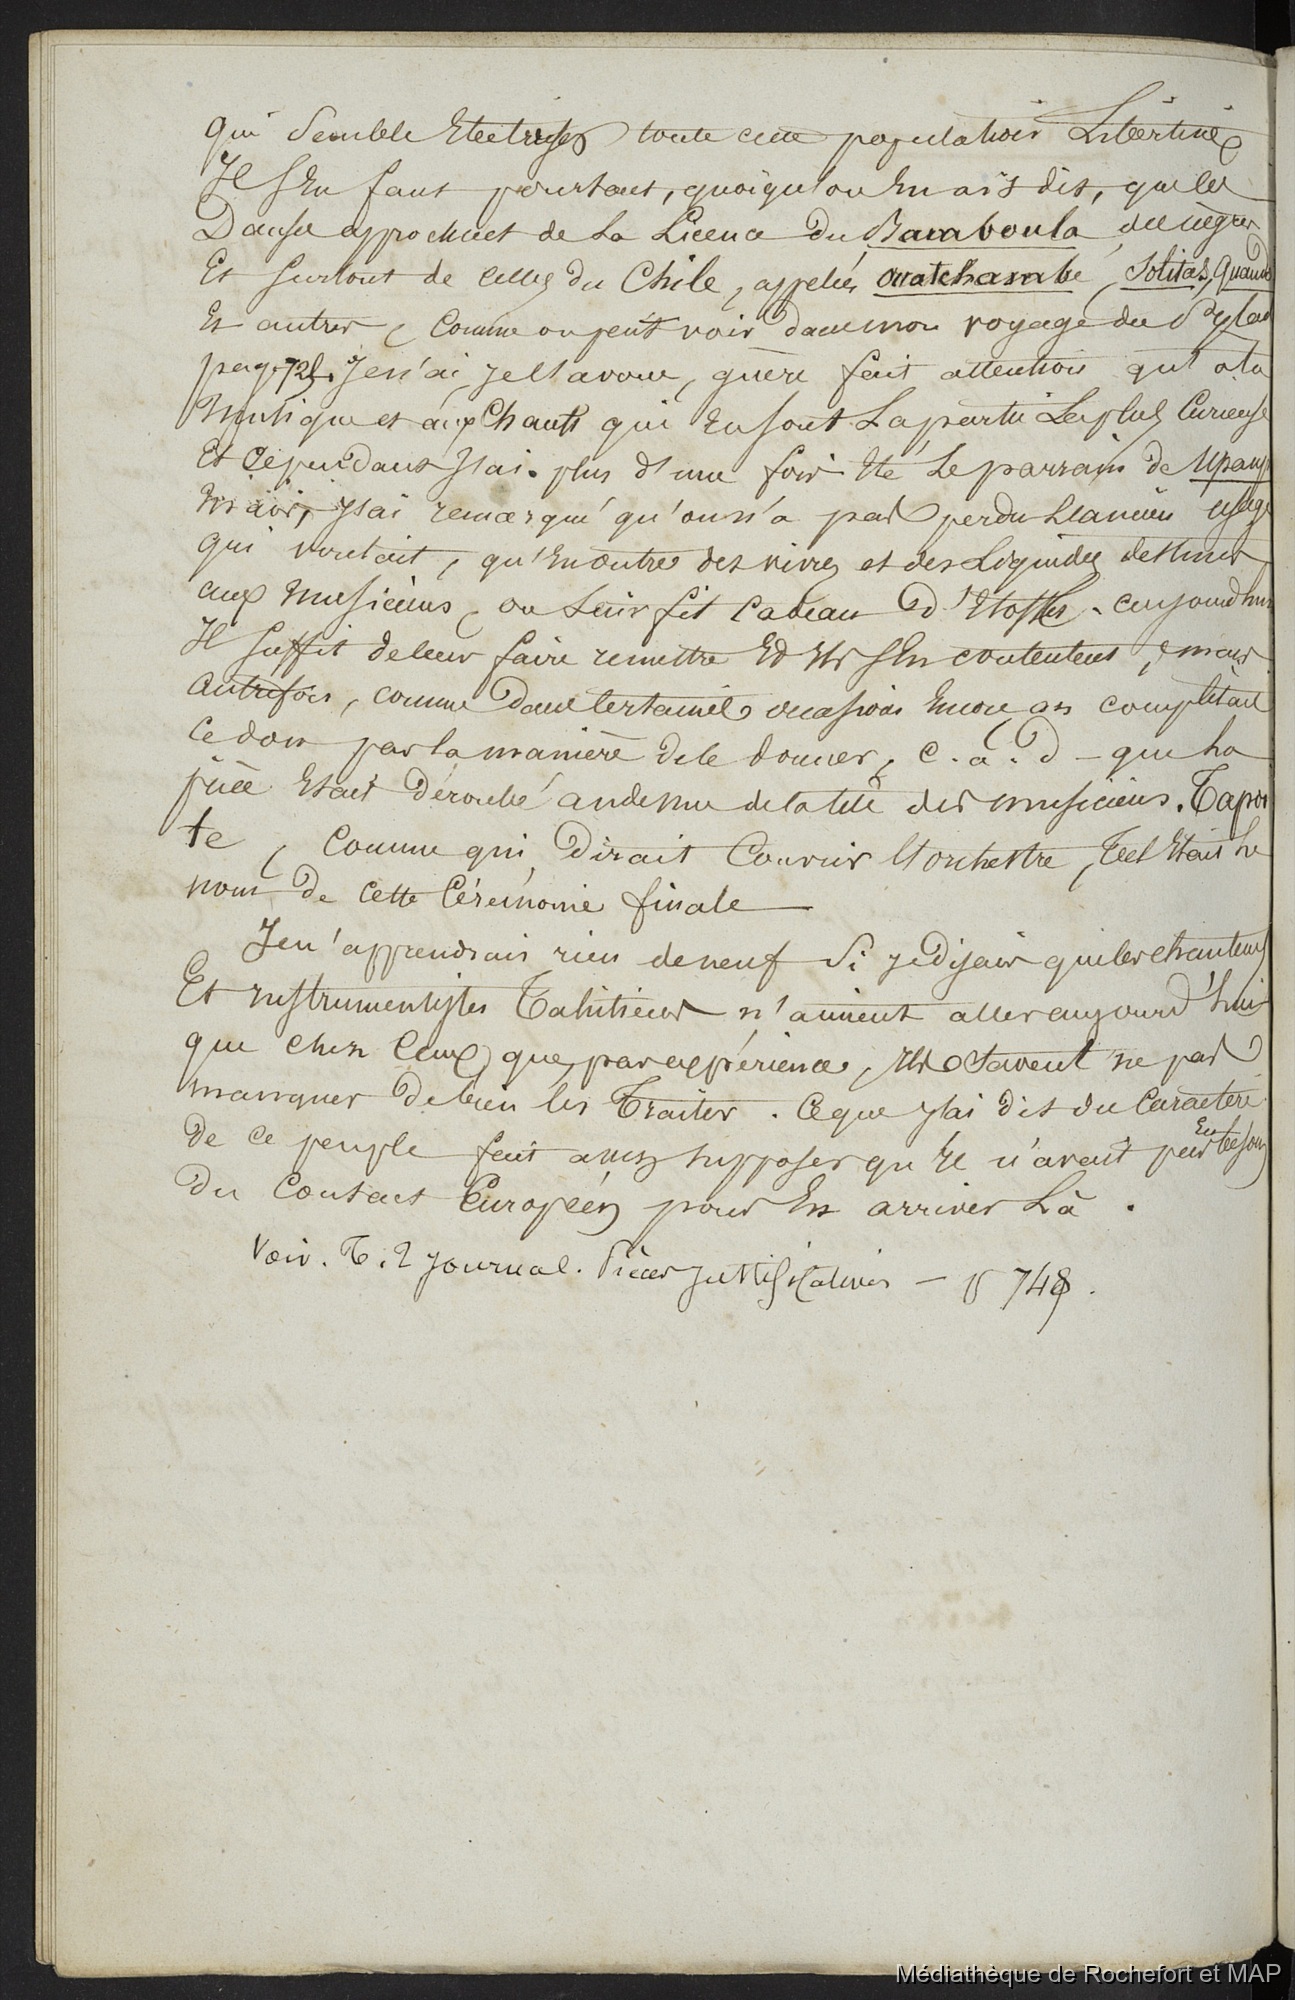 qui semble Electriser toute cette population Libertine
Il s'En faut pourtant, quoiqu'on En ait dit, que les
Danses approchent de La Licence du Bamboula des nègres
Et surtout de celles du Chile, appelées ouatchambé, Solitas, Quando
Et autres, comme on peut voir dans mon voyage du Pylade
page 72. Je n'ai, je l'avoue, guère fait attention qu'à la
Musique et aux Chants qui En sont La partie La plus Curieuse
Et Cependant J'ai plus d'une fois Eté Le parrain de Upaupa
J'ai remarqué qu'on n'a pas perdu L'ancien usage
qui voulait, qu'En outre des vivres et des Liquides destinés
aux Musiciens, on Leur fit Cadeau d'Etoffes. aujourd'hui
Il suffit de leur faire remettre Et Ils s'En contentent, mais
Autrefois, comme Dans Certaines occasions Encore on complétait
Ce don par la manière de le donner, c. à. d - que La
pièce Etait Déroulée au dessus de la tête des musiciens. Tapoi
te, Comme qui Dirait Couvrir L'orchestre, Tel Etait Le
nom De Cette Cérémonie finale
Je n'apprendrais rien de neuf Si je disais que les chanteurs
Et Instrumentistes Tahitiens n'aiment aller aujourd'hui
que chez Ceux, que, par expérience, Ils Savent ne pas
manquer De bien les Traiter. Ce que J'ai dit du Caractère
de ce peuple fait assez supposer qu'Il n'avait pas En besoin
Du Contact Européen pour En arriver Là.
Voir. T. 2 Journal. Pièces Justificatives - p 748.
Médiathèque de Rochefort et MAP